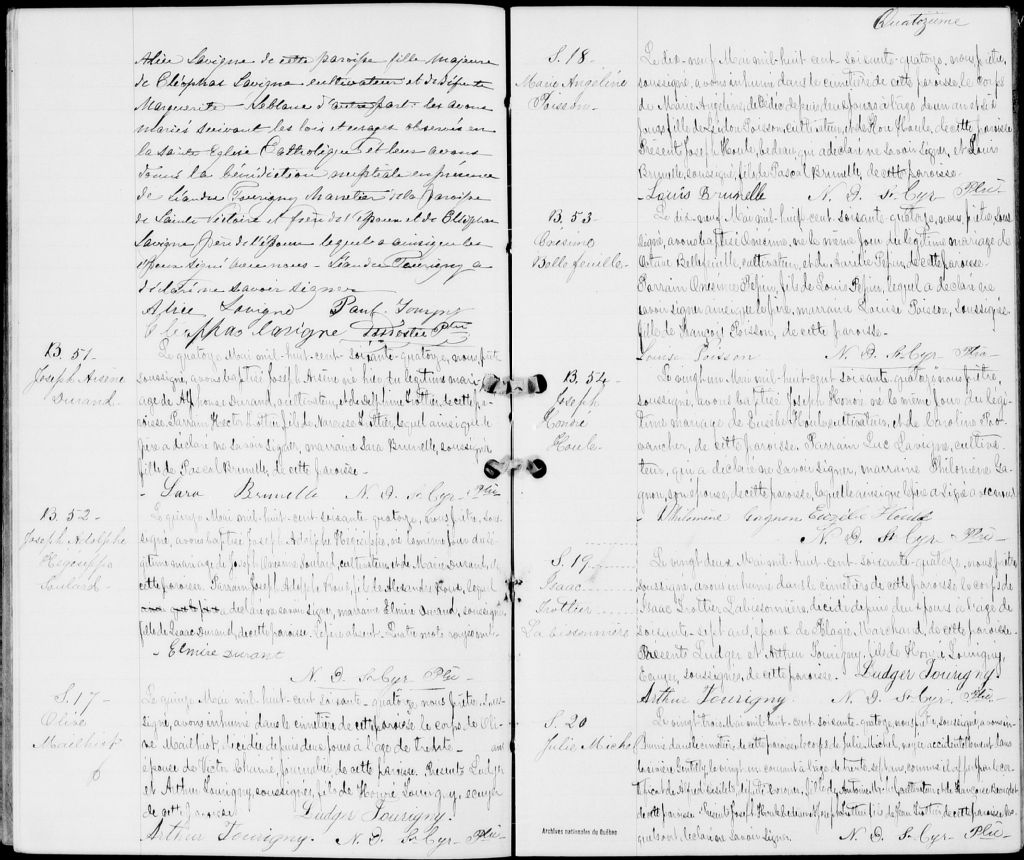 Alice Lavigne de cette paroisse fille majeure
de Cléophas Lavigne cultivateur et de défunte
Marguerite Rablaise d'autre part les avons
mariés suivant les lois et usages observés en
la sainte Eglise Catholique et leur avons
donné la bénédiction nuptiale en présence
de Léandre Tourigny de la paroisse
de Sainte Victoire et frère de l'époux et de Cléophas
Lavigne père de l'épouse lequel a ainsi que les
époux signé avec nous - Léandre Tourigny a
déclaré ne savoir signer
Alice Lavigne Paul Tourigny
Cleophas Lavigne Ptre
B. 51-
Joseph Arsène
Durand-
Le quatorze Mai mil-huit-cent soixante-quatorze, nous, prêtre
soussigné, avons baptisé Joseph Arsène né hier du légitime mari-
age de Alphonse Durand, cultivateur, et de de cette pa-
roisse. Parrain Hector fils de Narcisse lequel ainsi que le
père a déclaré ne savoir signer, marraine Sara Brunelle, soussignée
fille de Pascal Brunelle, de cette paroisse-
- Sara Brunelle N. D. St-Cyr- Ptre
B. 52-
Joseph Adolphe
Hégésippe
Soulard-
Le quinze Mai mil-huit-cent-soixante quatorze, nous, prêtre, sous-
signé, avons baptisé Joseph Adolphe Hégésippe, né le même jour du lé-
gitime mariage de Joseph Onésime Soulard, cultivateur, et de Marie Durand, de
cette paroisse. Parrain Joseph Adolphe fils de Alexandre lequel
a déclaré ne savoir signer, marraine Elmire Durand, soussignée
fille de Isaac Durand, de cette paroisse. Le père absent. Quatre mots rayés nuls-
- Elmire Durant
N. D. St-Cyr Ptre-
S. 17-
Olive
Mailhiot
Le quinze Mai mil-huit cent soixante-quatorze, nous, prêtre, sous-
signé, avons inhumé dans le cimetière de cette paroisse le corps de Oli-
ve Mailhiot, décédée depuis deux jours à l'âge de trente- ans
épouse de Victor journalier, de cette paroisse. Présents Ludger
et Arthur Tourigny, soussignés, fils de Honoré Tourigny, écuyer
de cette paroisse. Ludger Tourigny.
Arthur Tourigny. N. D. St-Cyr- Ptre-
Quatorzième
S. 18-
Marie Angeline
Poisson-
Le dix-neuf Mai mil-huit cent soixante-quatorze, nous, prêtre,
soussigné, avons inhumé dans le cimetière de cette paroisse, le corps
de Marie Angeline, décédée depuis deux jours à l'âge de un an et
jours, fille de Poisson, cultivateur, et de Houle, de cette paroisse.
Présent Joseph Houle, bedeau, qui a déclaré ne savoir signer, et Louis
Brunelle, soussigné, fils de Pascal Brunelle, de cette paroisse.
- Louis Brunelle N. D. St-Cyr Ptre-
B. 53
Onésime
Bellefeuille-
Le dix-neuf Mai mil-huit-cent soixante-quatorze, nous, prêtre, sous-
signé, avons baptisé Onésime, né le même jour du légitime mariage de
Bellefeuille, cultivateur, et de Aurélie Pepin, de cette paroisse-
Parrain Onésime Pepin, fils de Louis Pepin, lequel a déclaré ne
savoir signer ainsi que le père, marraine Louise Poisson, soussignée
fille de François Poisson, de cette paroisse-
Louise Poisson N. D. St-Cyr- Ptre-
B. 54-
Joseph
Honoré
Houle-
Le vingt-un Mai mil-huit-cent soixante-quatorze, nous, prêtre,
soussigné, avons baptisé Joseph Honoré né le même jour du légi-
time mariage de Eusèbe Houle, cultivateur, et de Caroline Pro-
vancher, de cette paroisse. Parrain Luc Lavigne, cultiva-
teur, qui a déclaré ne savoir signer, marraine Philomène Ga-
gnon, son épouse, de cette paroisse, laquelle ainsi que le père a signé avec nous
- Philomène Gagnon Eusèbe Houle
N. D. St-Cyr Ptre-
S. 19-
Isaac
Trottier
Labissonnière
Le vingt-deux Mai mil-huit-cent-soixante-quatorze, nous, prêtre
soussigné, avons inhumé dans le cimetière de cette paroisse le corps de
Isaac Trottier Labissonnière, décédé depuis deux jours à l'âge de
soixante-sept ans, époux de Pélagie Marchand, de cette paroisse-
Présents Ludger et Arthur Tourigny, fils de Honoré Tourigny,
Ecuyer, soussignés, de cette paroisse. Ludger Tourigny.
Arthur Tourigny. N. D. St-Cyr- Ptre-
S. 20
Julie Michel
Le vingt-trois Mai mil-huit-cent-soixante-quatorze, nous, prêtre, soussigné, avons in-
humé dans le cimetière de cette paroisse le corps de Julie Michel, noyée accidentellement dans
la rivière Gentilly le vingt-un courant à l'âge de trente-sept ans, comme il appert par le cer-
tificat de Alfred coroner, fille de Antoine Michel, et de Françoise
de cette paroisse. Présents Joseph Houle, bedeau, et Joseph fils de Jean de cette paroisse, les-
quels ont déclaré ne savoir signer. N. D. St-Cyr Ptre-
Archives nationales du Québec